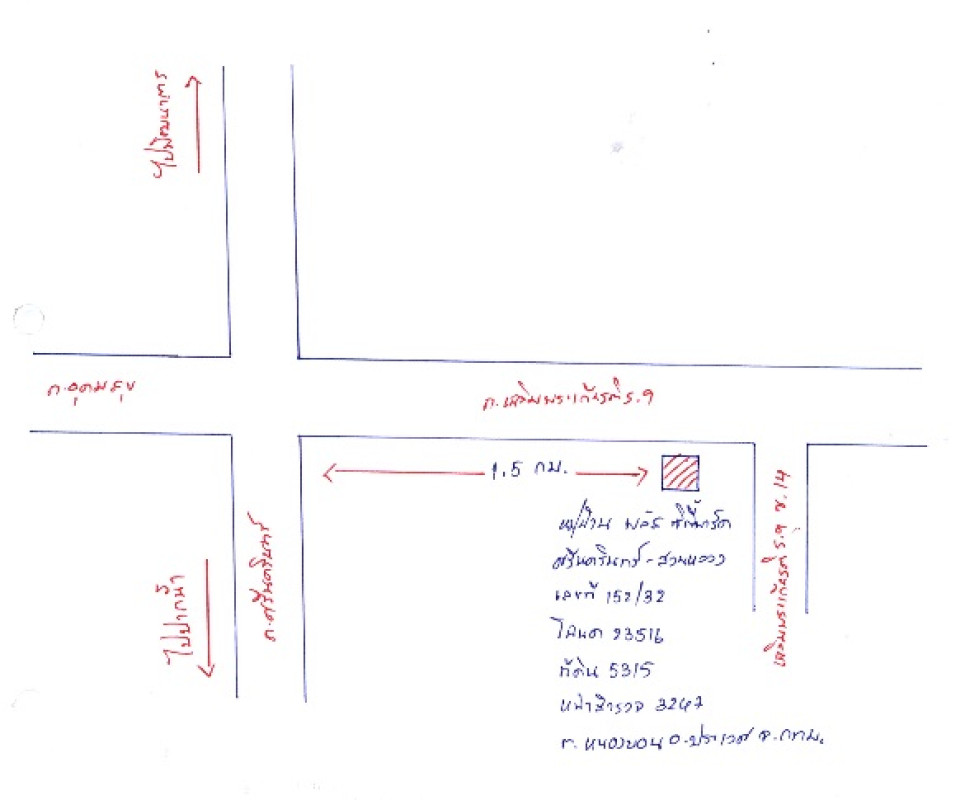 ไปพัฒนาการ
ถ.อุดมสุข
ถ.เฉลิมพระเกียรติ ร.9
1.5 กม.
ถ.ศรีนครินทร์
ไปปากน้ำ
เฉลิมพระเกียรติ ร.9 ซ.14
หมู่บ้าน พลัส ซิตี้พาร์ค
ศรีนครินทร์-สวนหลวง
เลขที่ 152/32
โฉนด 23516
ที่ดิน 5315
หน้าสำรวจ 3247
ต.หนองบอน อ.ประเวศ จ.กทม.